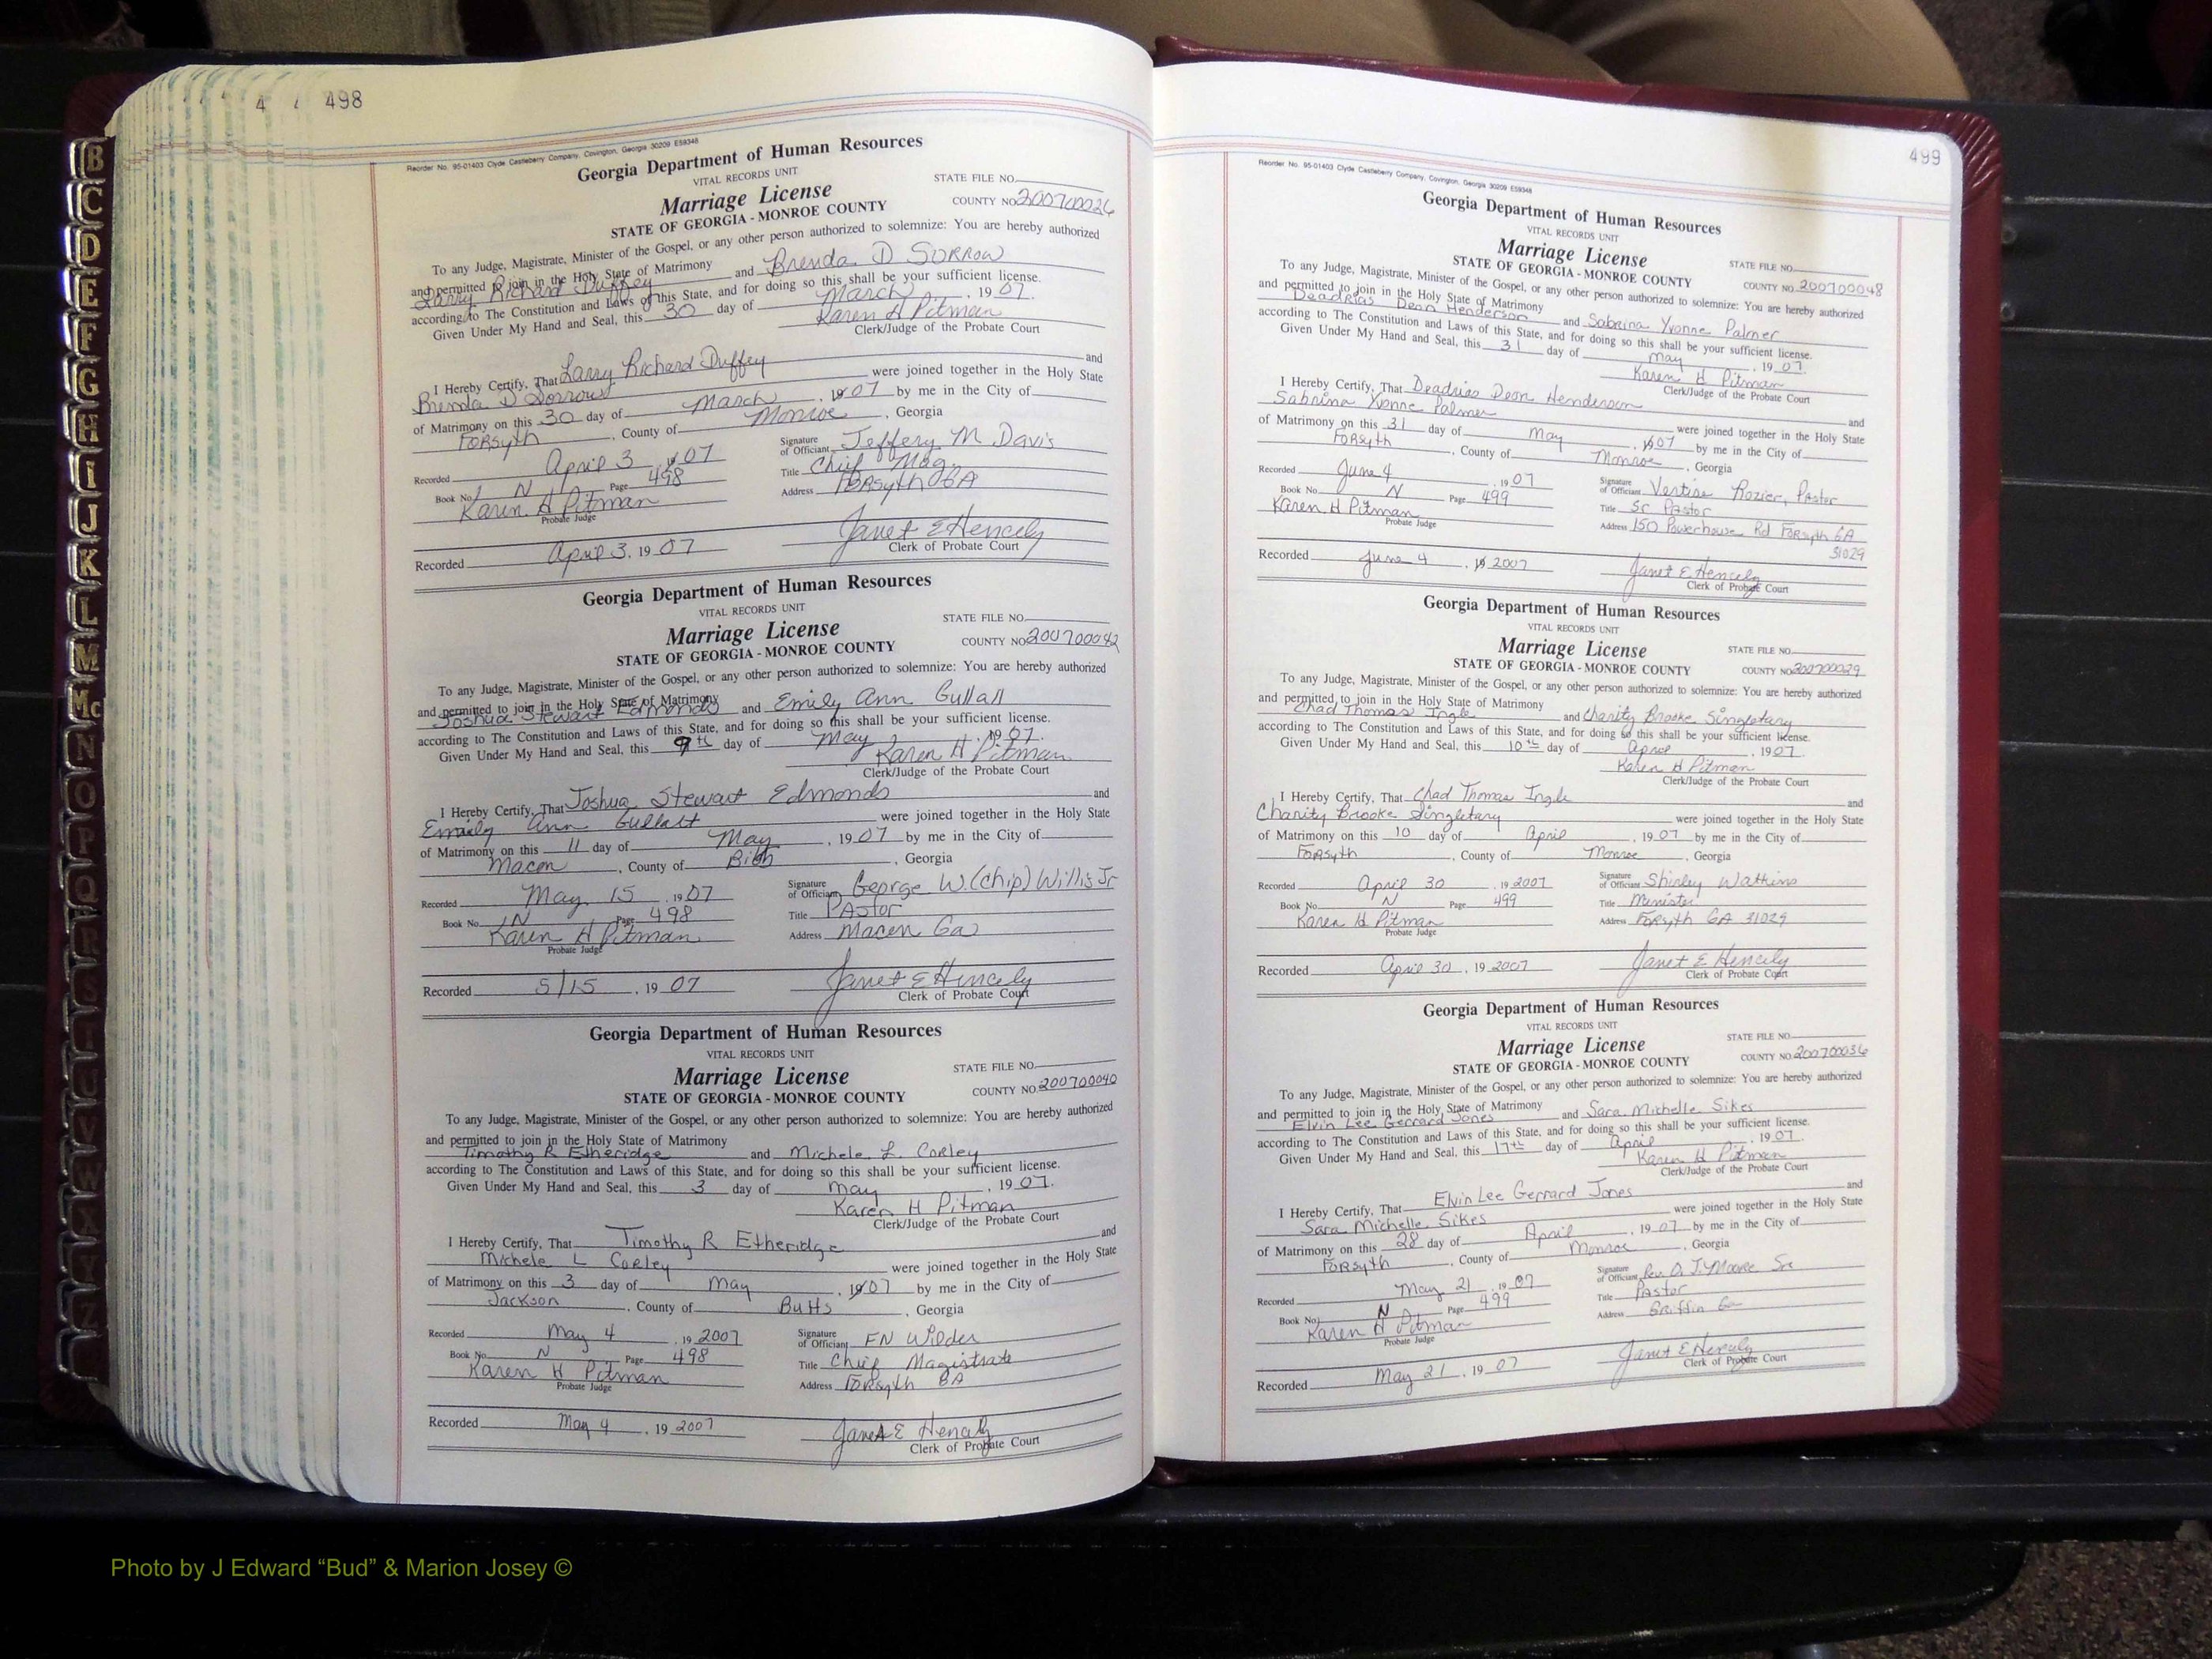 B
C
D
E
F
G
H
I
J
K
L
M
Mc
N
O
P
Q
R
S
T
U
V
W
X
Y
Z
498
Reorder No. 95-01403 Clyde Castleberry Company, Covington, Georgia 30209 E59348
Georgia Department of Human Resources
VITAL RECORDS UNIT
STATE FILE NO.
Marriage License
COUNTY NO 200700026
STATE OF GEORGIA - MONROE COUNTY
To any Judge, Magistrate, Minister of the Gospel, or any other person authorized to solemnize: You are hereby authorized
and permitted to join in the Holy State of Matrimony
Larry Richard Duffey and Brenda D Sorrow
according to The Constitution and Laws of this State, and for doing so this shall be your sufficient license.
Given Under My Hand and Seal, this 30 day of March, 19 07.
Karen H Pitman
Clerk/Judge of the Probate Court
I Hereby Certify, That Larry Richard Duffey and
Brenda D Sorrow were joined together in the Holy State
of Matrimony on this 30 day of March, 19 07 by me in the City of
Forsyth, County of Monroe, Georgia
Recorded April 3 19 07 Signature of Officiant Jeffery M Davis
Book No. N Page 498 Title Chief Mag.
Karen H Pitman Address Forsyth GA
Probate Judge
Janet E Hencely
Recorded April 3, 19 07 Clerk of Probate Court
Georgia Department of Human Resources
VITAL RECORDS UNIT
STATE FILE NO.
Marriage License
COUNTY NO 200700042
STATE OF GEORGIA - MONROE COUNTY
To any Judge, Magistrate, Minister of the Gospel, or any other person authorized to solemnize: You are hereby authorized
and permitted to join in the Holy State of Matrimony
Joshua Stewart Edmonds and Emily Ann
according to The Constitution and Laws of this State, and for doing so this shall be your sufficient license.
Given Under My Hand and Seal, this 9th day of May, 19 07.
Karen H Pitman
Clerk/Judge of the Probate Court
I Hereby Certify, That Joshua Stewart Edmonds and
Emily Ann were joined together in the Holy State
of Matrimony on this 11 day of May, 19 07 by me in the City of
Macon, County of Bibb, Georgia
Recorded May 15, 19 07 Signature of Officiant George W. (Chip) Willis Jr
Book No. N Page 498 Title Pastor
Karen H Pitman Address Macon Ga
Probate Judge
Janet E Hencely
Recorded 5/15, 19 07 Clerk of Probate Court
Georgia Department of Human Resources
VITAL RECORDS UNIT
STATE FILE NO.
Marriage License
COUNTY NO. 200700040
STATE OF GEORGIA - MONROE COUNTY
To any Judge, Magistrate, Minister of the Gospel, or any other person authorized to solemnize: You are hereby authorized
and permitted to join in the Holy State of Matrimony
Timothy R Etheridge and Michele L. Corley
according to The Constitution and Laws of this State, and for doing so this shall be your sufficient license.
Given Under My Hand and Seal, this 3 day of May, 19 07.
Karen H Pitman
Clerk/Judge of the Probate Court
I Hereby Certify, That Timothy R Etheridge and
Michele L Corley were joined together in the Holy State
of Matrimony on this 3 day of May, 19 07 by me in the City of
Jackson, County of Butts, Georgia
Recorded May 4, 19 2007 Signature of Officiant FN Wilder
Book No. N Page 498 Title Chief Magistrate
Karen H Pitman Address Forsyth GA
Probate Judge
Recorded May 4, 19 2007 Janet E Hencely
Clerk of Probate Court
499
Reorder No. 95-01403 Clyde Castleberry Company, Covington, Georgia 30209 E59348
Georgia Department of Human Resources
VITAL RECORDS UNIT
Marriage License
STATE FILE NO.
STATE OF GEORGIA - MONROE COUNTY
COUNTY NO. 200700048
To any Judge, Magistrate, Minister of the Gospel, or any other person authorized to solemnize: You are hereby authorized
and permitted to join in the Holy State of Matrimony
Deadrias Deon Henderson and Sabrina Yvonne Palmer
according to The Constitution and Laws of this State, and for doing so this shall be your sufficient license.
Given Under My Hand and Seal, this 31 day of May, 19 07.
Karen H Pitman
Clerk/Judge of the Probate Court
I Hereby Certify, That Deadrias Deon Henderson and
Sabrina Yvonne Palmer were joined together in the Holy State
of Matrimony on this 31 day of May, 19 07 by me in the City of
Forsyth, County of Monroe, Georgia
Recorded June 4, 19 07 Signature of Officiant Vertise Rozier, Pastor
Book No. N Page 499 Title Sr Pastor
Karen H Pitman Address 150 Powerhouse Rd Forsyth GA
Probate Judge 31029
Recorded June 4, 19 2007 Janet E Hencely
Clerk of Probate Court
Georgia Department of Human Resources
VITAL RECORDS UNIT
Marriage License
STATE FILE NO.
STATE OF GEORGIA - MONROE COUNTY
COUNTY NO 200700029
To any Judge, Magistrate, Minister of the Gospel, or any other person authorized to solemnize: You are hereby authorized
and permitted to join in the Holy State of Matrimony
Chad Thomas Ingle and Charity Brooke Singletary
according to The Constitution and Laws of this State, and for doing so this shall be your sufficient license.
Given Under My Hand and Seal, this 10th day of April, 19 07.
Karen H Pitman
Clerk/Judge of the Probate Court
I Hereby Certify, That Chad Thomas Ingle and
Charity Brooke Singletary were joined together in the Holy State
of Matrimony on this 10 day of April, 19 07 by me in the City of
Forsyth, County of Monroe, Georgia
Recorded April 30, 19 2007 Signature of Officiant Shirley Watkins
Book No. N Page 499 Title Minister
Karen H Pitman Address Forsyth GA 31029
Probate Judge
Recorded April 30, 19 2007 Janet E Hencely
Clerk of Probate Court
Georgia Department of Human Resources
VITAL RECORDS UNIT
Marriage License
STATE FILE NO.
STATE OF GEORGIA - MONROE COUNTY
COUNTY NO. 200700036
To any Judge, Magistrate, Minister of the Gospel, or any other person authorized to solemnize: You are hereby authorized
and permitted to join in the Holy State of Matrimony
Elvin Lee Gerrard Jones and Sara Michelle Sikes
according to The Constitution and Laws of this State, and for doing so this shall be your sufficient license.
Given Under My Hand and Seal, this 17th day of April, 19 07.
Karen H Pitman
Clerk/Judge of the Probate Court
I Hereby Certify, That Elvin Lee Gerrard Jones and
Sara Michelle Sikes were joined together in the Holy State
of Matrimony on this 28 day of April, 19 07 by me in the City of
Forsyth, County of Monroe, Georgia
Recorded May 21, 19 07 Signature of Officiant Rev. O. J. Moore Sr
Book No. N Page 499 Title Pastor
Karen H Pitman Address Griffin Ga
Probate Judge
Recorded May 21, 19 07 Janet E Hencely
Clerk of Probate Court
Photo by J Edward “Bud” & Marion Josey ©